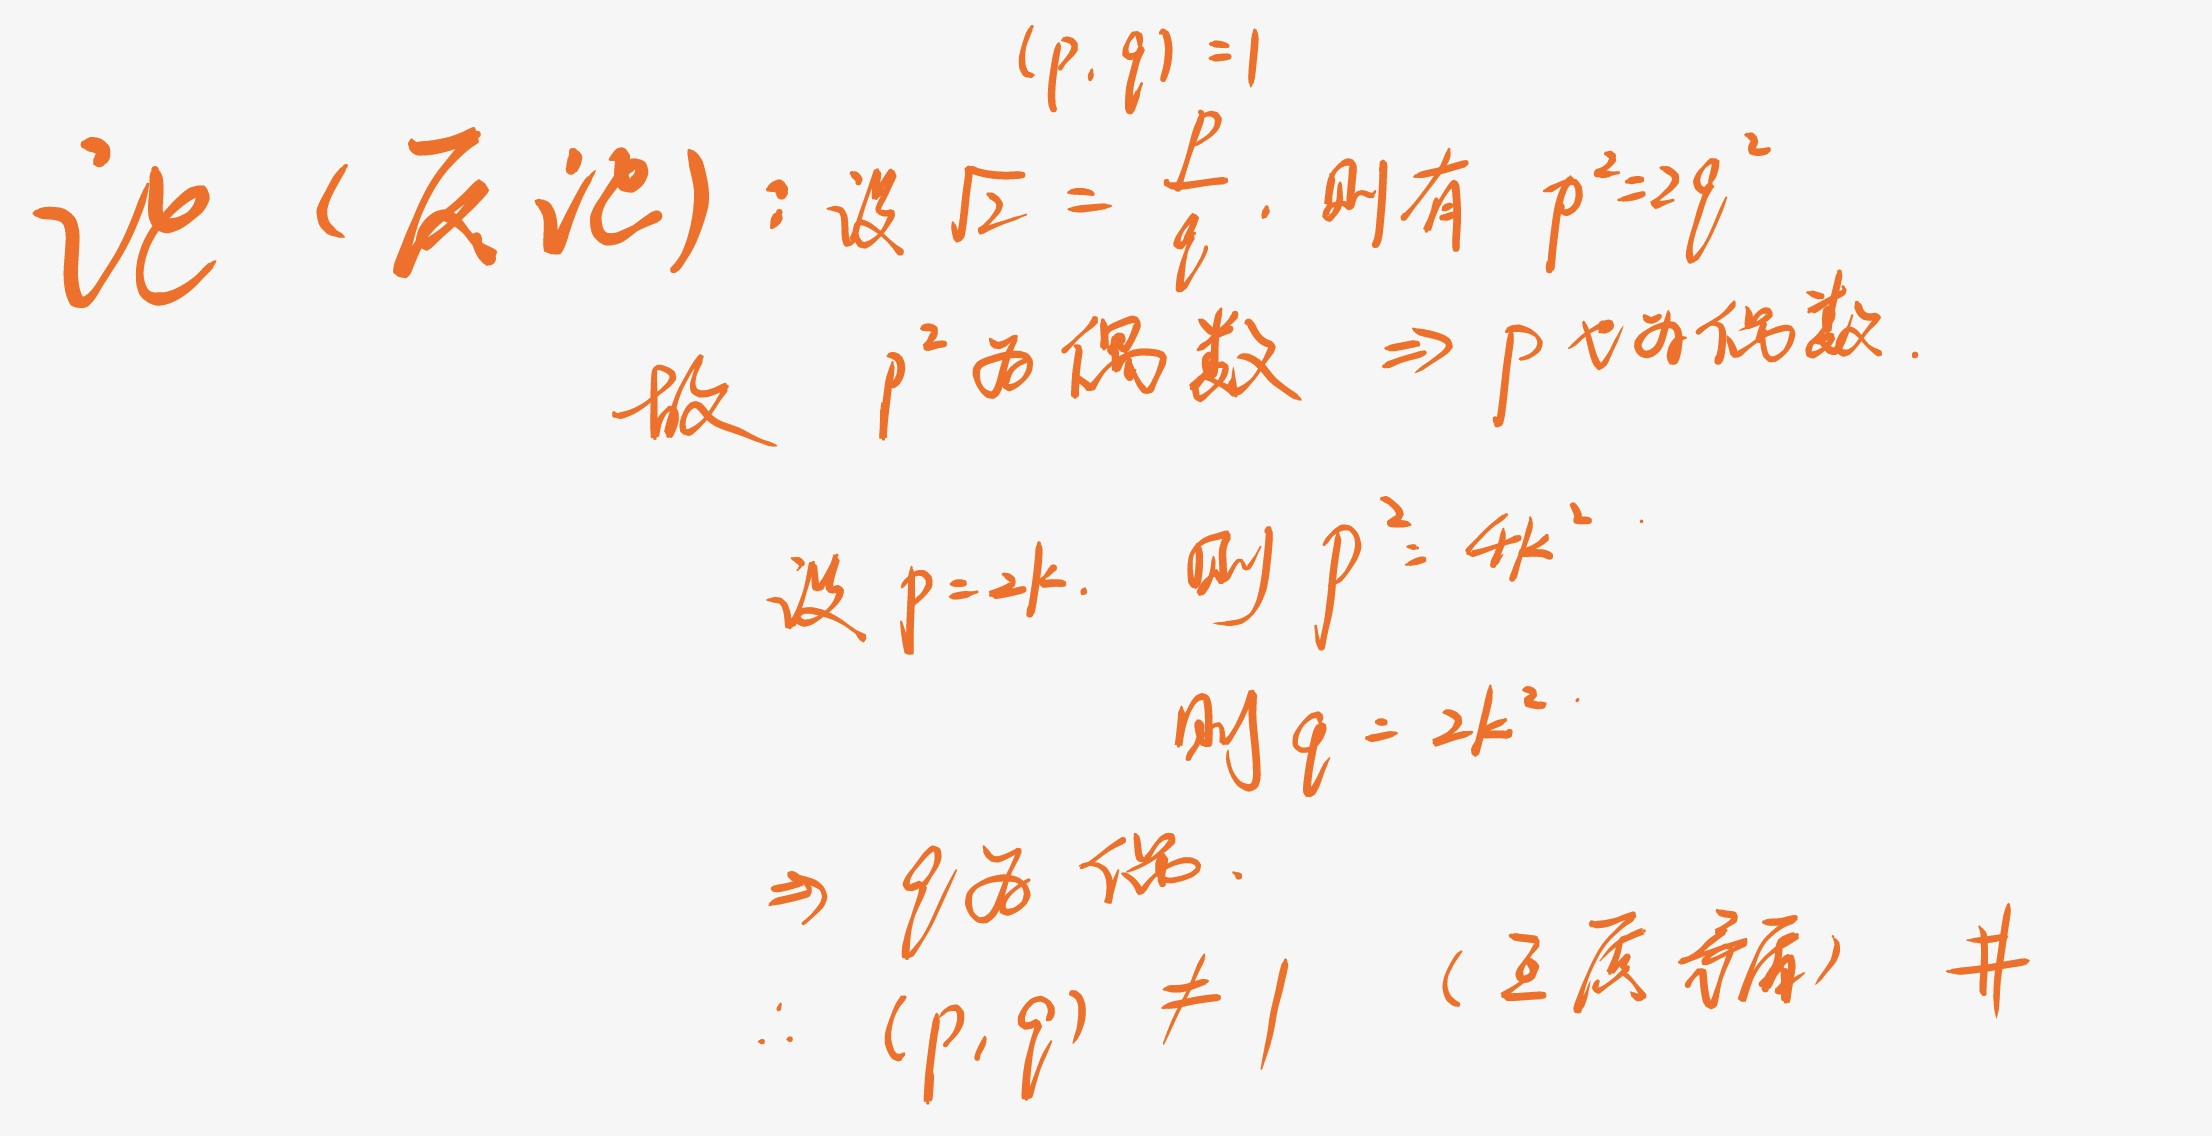 (p, q) = 1
记 (反记) : 设 √2 = p/q . 则有 p²=2q²
故 p² 为偶数 ⇒ p 必为偶数.
设 p=2k. 则 p²=4k².
则 q = 2k².
⇒ q 为偶.
∴ (p, q) ≠ 1 (互质矛盾) #